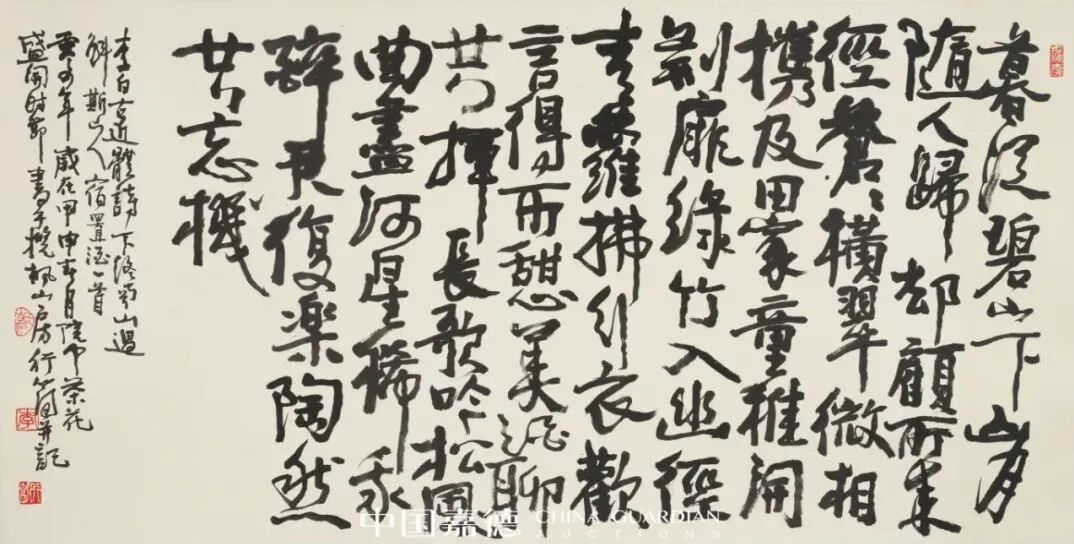 暮從碧山下山月
隨人歸却顧所來
徑蒼〻橫翠微相
攜及田家童稚開
荊扉綠竹入幽徑
青蘿拂引衣歡
言得所憩美酒聊
共揮長歌吟松風
曲盡河星稀我
醉君復樂陶然
共忘機
李白古近體詩下終南山過
斛斯山人宿置酒一首
零四年歲在甲申春月院中茶花
盛開時節書于攬楓山房行簡并記
中国嘉德 CHINA GUARDIAN
AUCTIONS